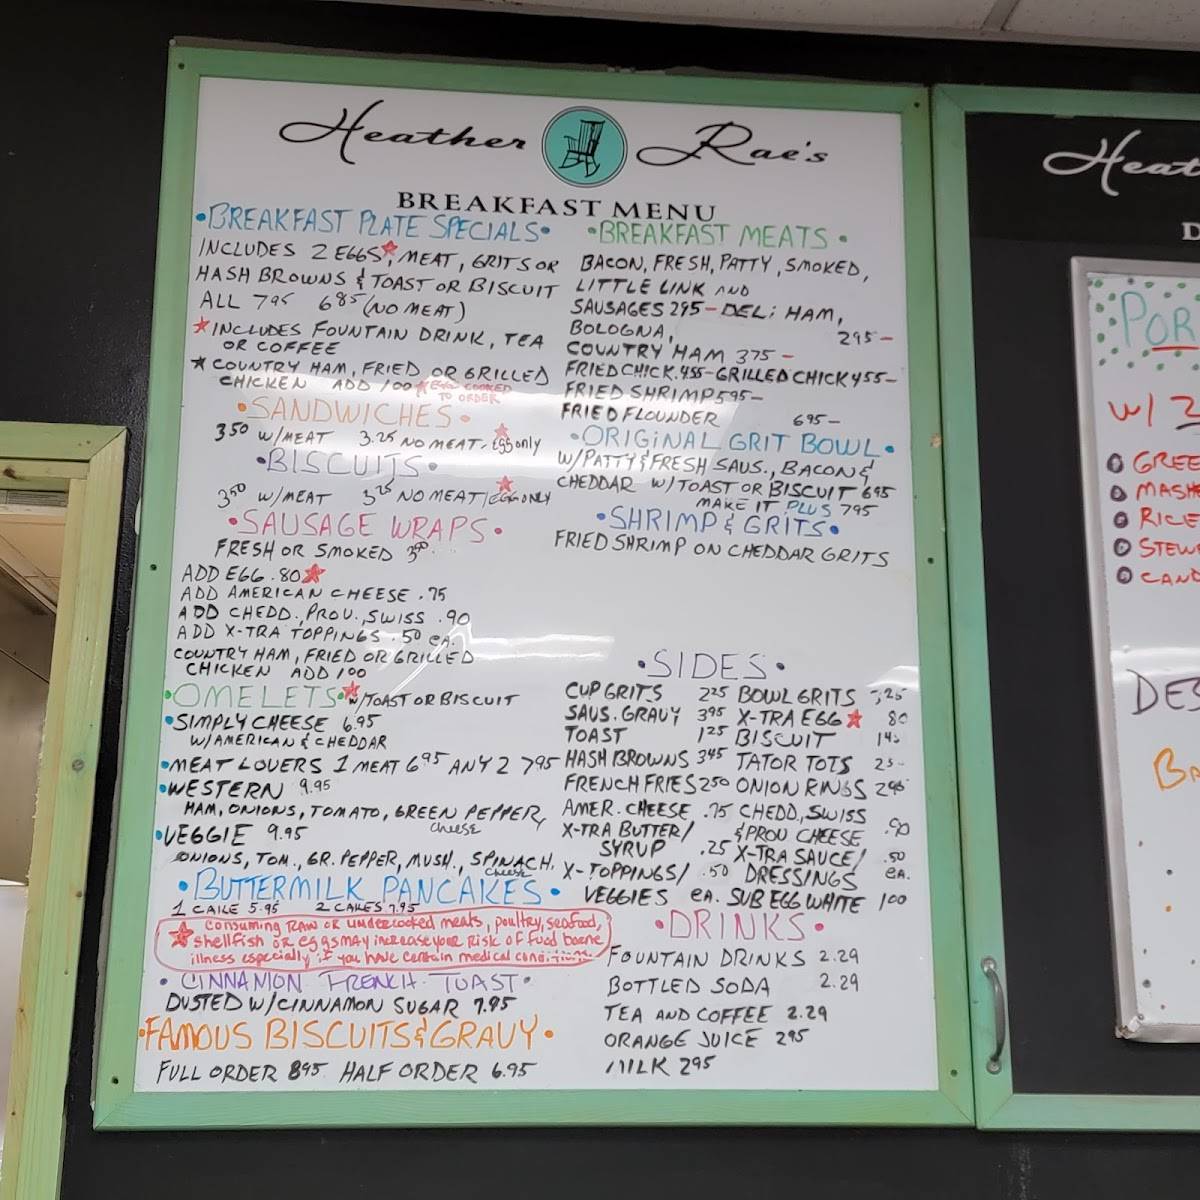 Heather Rae's
BREAKFAST MENU
•BREAKFAST PLATE SPECIALS•
INCLUDES 2 EGGS, MEAT, GRITS OR
HASH BROWNS & TOAST OR BISCUIT
ALL 7.95 6.85 (NO MEAT)
INCLUDES FOUNTAIN DRINK, TEA
OR COFFEE
COUNTRY HAM, FRIED OR GRILLED
CHICKEN ADD 1.00 EGG COOKED
TO ORDER
•SANDWICHES•
3.50 W/MEAT 3.25 NO MEAT - Egg only
•BISCUITS•
3.50 W/MEAT 3.25 NO MEAT/EGG ONLY
•SAUSAGE WRAPS•
FRESH OR SMOKED
ADD EGG .80
ADD AMERICAN CHEESE .75
ADD CHEDD., PROV., SWISS .90
ADD X-TRA TOPPINGS .50 EA.
COUNTRY HAM, FRIED OR GRILLED
CHICKEN ADD 1.00
OMELETS• W/TOAST OR BISCUIT
•SIMPLY CHEESE 6.95
W/AMERICAN & CHEDDAR
•MEAT LOVERS 1 MEAT 6.95 ANY 2 7.95
•WESTERN 9.95
HAM, ONIONS, TOMATO, GREEN PEPPER,
cheese
•VEGGIE 9.95
ONIONS, TOM., GR. PEPPER, MUSH., SPINACH.
cheese
•BUTTERMILK PANCAKES•
1 CAKE 5.95 2 CAKES 7.95
Consuming RAW OR undercooked meats, poultry, seafood,
shellfish OR eggs MAY increase your RISK OF food borne
illness especially if you have certain medical conditions
•CINNAMON FRENCH TOAST•
DUSTED W/CINNAMON SUGAR 7.95
•FAMOUS BISCUITS & GRAVY•
FULL ORDER 8.95 HALF ORDER 6.95
•BREAKFAST MEATS•
BACON, FRESH, PATTY, SMOKED,
LITTLE LINK AND
SAUSAGES 2.95 - DELI HAM,
BOLOGNA, 2.95 -
COUNTRY HAM 3.75 -
FRIED CHICK. 4.55 - GRILLED CHICK 4.55 -
FRIED SHRIMP 5.95 -
FRIED FLOUNDER 6.95 -
•ORIGINAL GRIT BOWL•
W/PATTY & FRESH SAUS., BACON &
CHEDDAR W/TOAST OR BISCUIT 6.95
MAKE IT PLUS 7.95
•SHRIMP & GRITS•
FRIED SHRIMP ON CHEDDAR GRITS
•SIDES•
CUP GRITS 2.25 BOWL GRITS
SAUS. GRAVY 3.95 X-TRA EGG 80
TOAST 1.25 BISCUIT
HASH BROWNS 3.45 TATOR TOTS
FRENCH FRIES 2.50 ONION RINGS
AMER. CHEESE .75 CHEDD, SWISS
& PROV CHEESE .90
X-TRA BUTTER/
SYRUP .25 X-TRA SAUCE/ .50
X-TOPPINGS/ .50 DRESSINGS EA.
VEGGIES EA. SUB EGG WHITE 1.00
•DRINKS•
FOUNTAIN DRINKS 2.29
BOTTLED SODA 2.29
TEA AND COFFEE 2.29
ORANGE JUICE 2.95
MILK 2.95
W/ 2
RICE